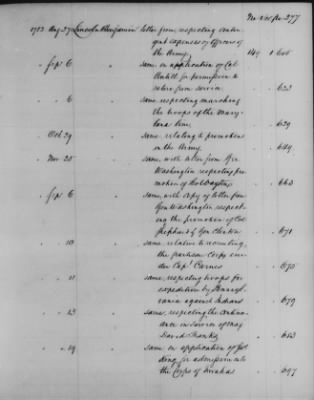 1783 Aug 27 Lincoln Benjamin letter from respecting contin-
gent expenses of Officers of
the Army 149 1 605
Sep 6 same on application of Col
for permission to
retire from service 623
6 same respecting marching
the troops of the Mary-
land line 629
Oct 29 same relating to promotions
in the Army 649
Nov 25 same with letter from Gen
Washington respecting pro-
motion of 663
Sep 6 same with copy of letter from
Gen Washington respect-
ing the promotion of Col
& Gen Clinton 671
10 same relative to recruiting
the partisan Corps un-
der Capt Carnes 675
11 same respecting troops for
expedition by Pennsyl-
vania against Indians 679
13 same respecting the ordin-
ance in favor of
David Franks 683
29 same on application of
King for admission into
the Corps of Invalids 697